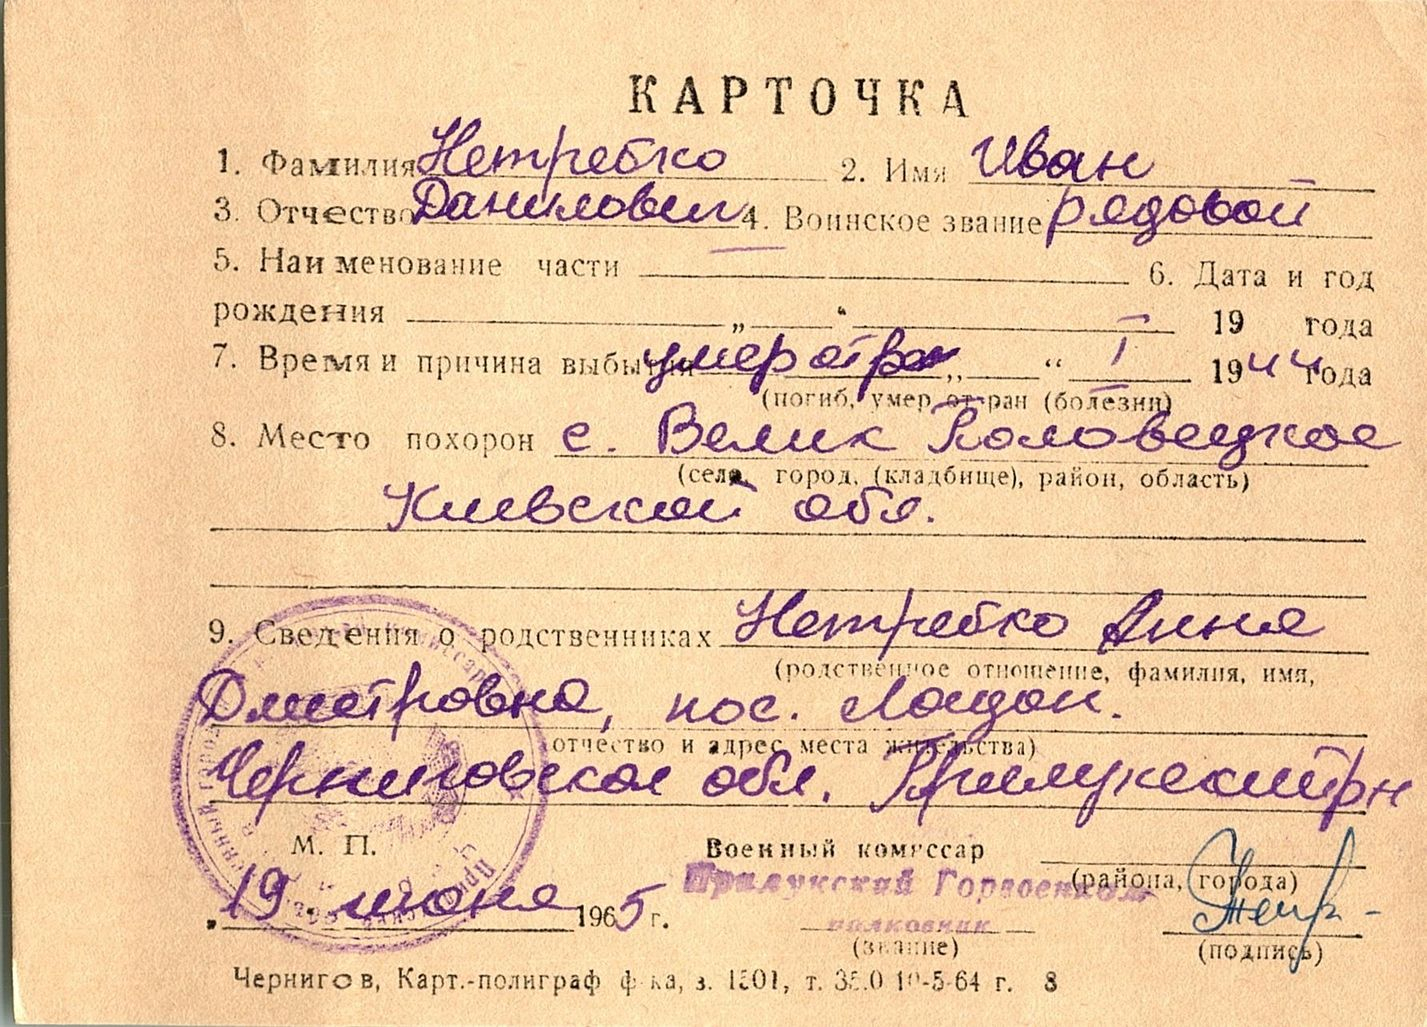 КАРТОЧКА
1. Фамилия Нетребко 2. Имя Иван
3. Отчество Данилович 4. Воинское звание рядовой
5. Наименование части 6. Дата и год
рождения „ “ 19 года
7. Время и причина выбытия умер от ран „ “ I 1944 года
(погиб, умер от ран (болезни)
8. Место похорон с. Велик Половецкое
(село, город, (кладбище), район, область)
Киевской обл.
9. Сведения о родственниках Нетребко Анна
(родственное отношение, фамилия, имя,
Дмитровна, пос. Ладан.
отчество и адрес места жительства)
Черниговская обл. Прилукский рн
М. П. Военный комиссар
Прилукский Горвоенком
(района, города)
„19 июня 1965 г.
полковник
(звание) (подпись)
Чернигов, Карт.-полиграф ф-ка, з. 1501, т. 10-5-64 г. 8